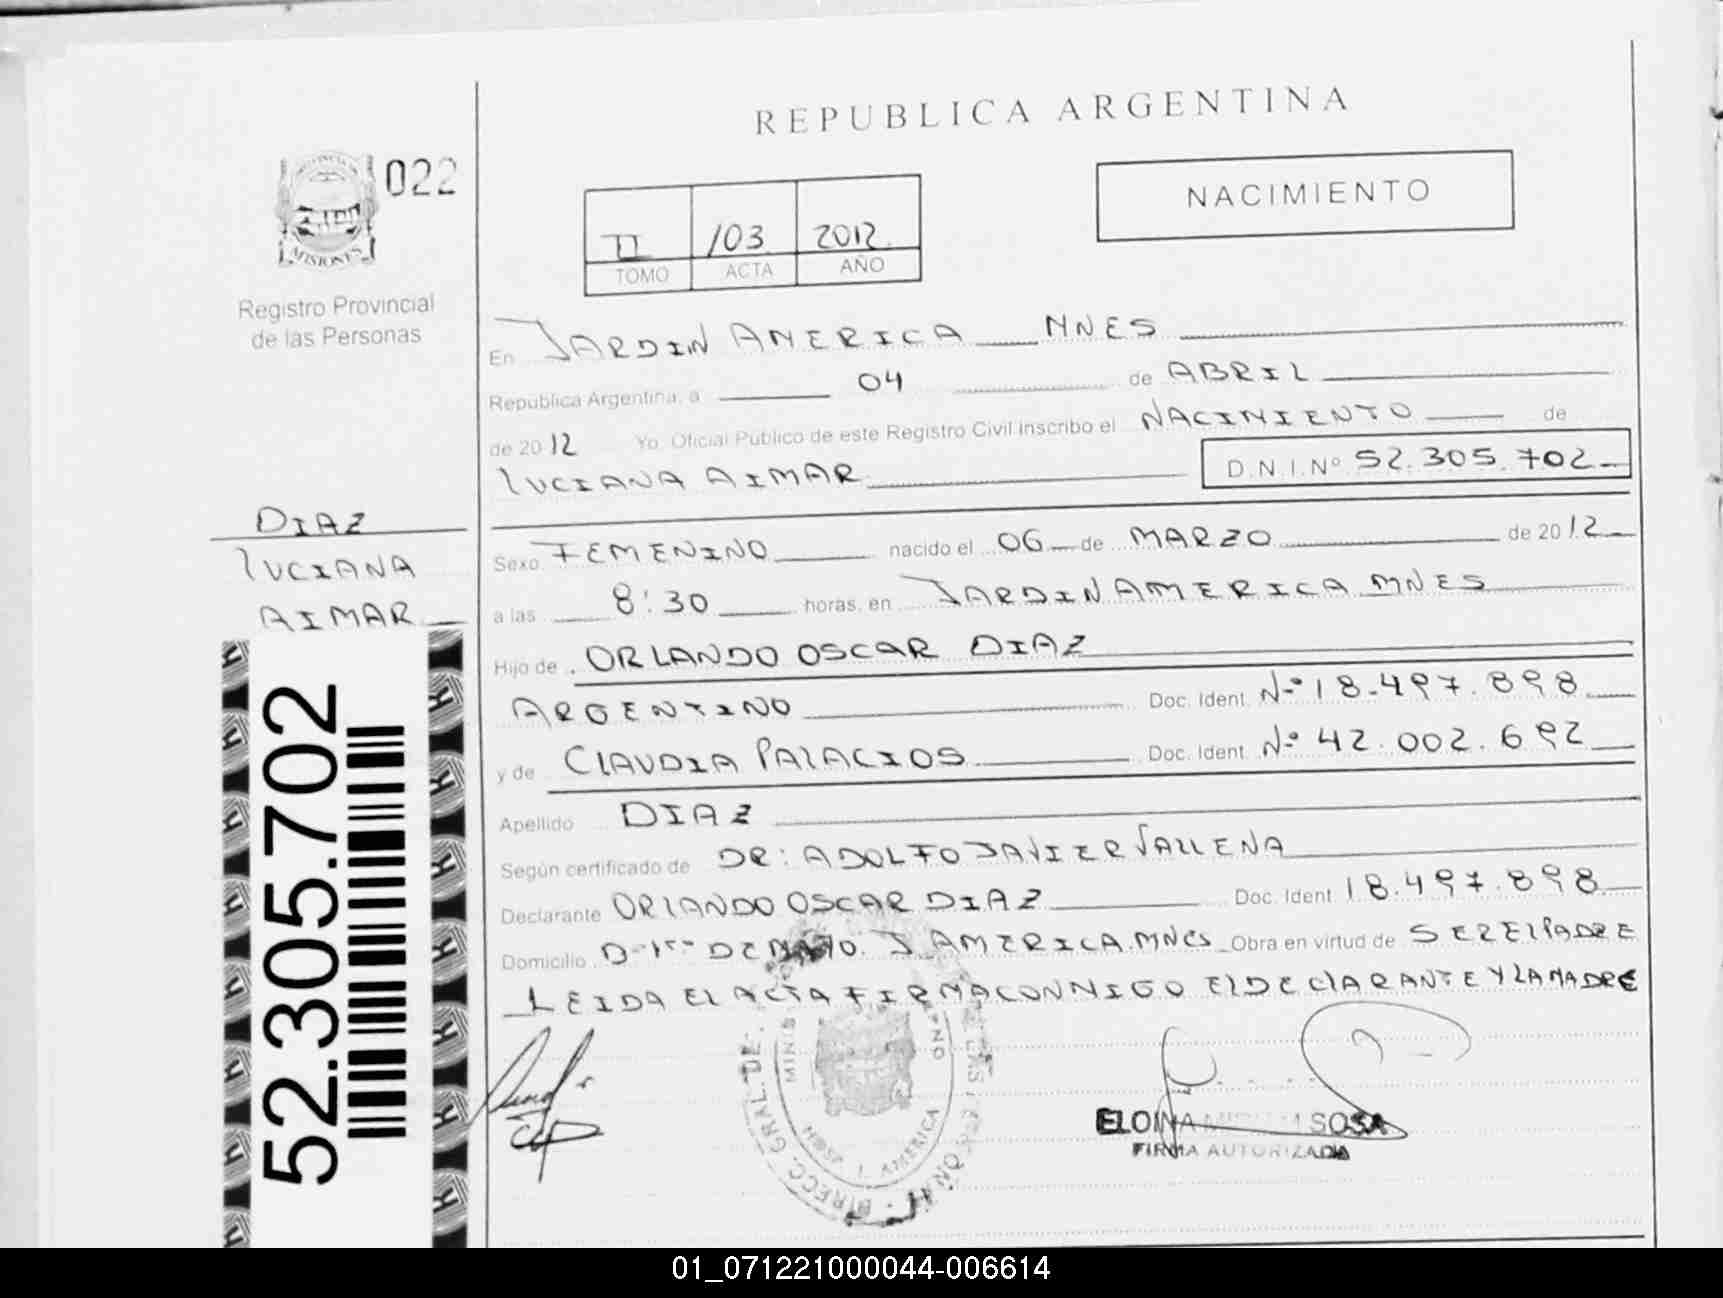 REPUBLICA ARGENTINA
022
MISIONES
Registro Provincial
de las Personas
NACIMIENTO
II 103 2012
TOMO ACTA AÑO
En JARDIN AMERICA MNES
Republica Argentina, a 04 de ABRIL
de 2012 Yo, Oficial Público de este Registro Civil inscribo el NACIMIENTO de
LUCIANA AIMAR D.N.I.Nº 52.305.702
DIAZ
LUCIANA
AIMAR
52.305.702
Sexo FEMENINO nacido el 06 de MARZO de 2012
a las 8:30 horas, en JARDIN AMERICA MNES
Hijo de ORLANDO OSCAR DIAZ
ARGENTINO Doc. Ident. Nº 18.497.898
y de CLAUDIA PALACIOS Doc. Ident. Nº 42.002.692
Apellido DIAZ
Según certificado de DR: ADOLFO JAVIER VALLENA
Declarante ORLANDO OSCAR DIAZ Doc. Ident 18.497.898
Domicilio DE MAYO. J. AMERICA. MNES Obra en virtud de SER EL PADRE
LEIDA EL ACTA FIRMA CONMIGO EL DECLARANTE Y LA MADRE
DIRECC. GRAL. DE
AMERICA
ELOINA SOSA
FIRMA AUTORIZADA
01_071221000044-006614